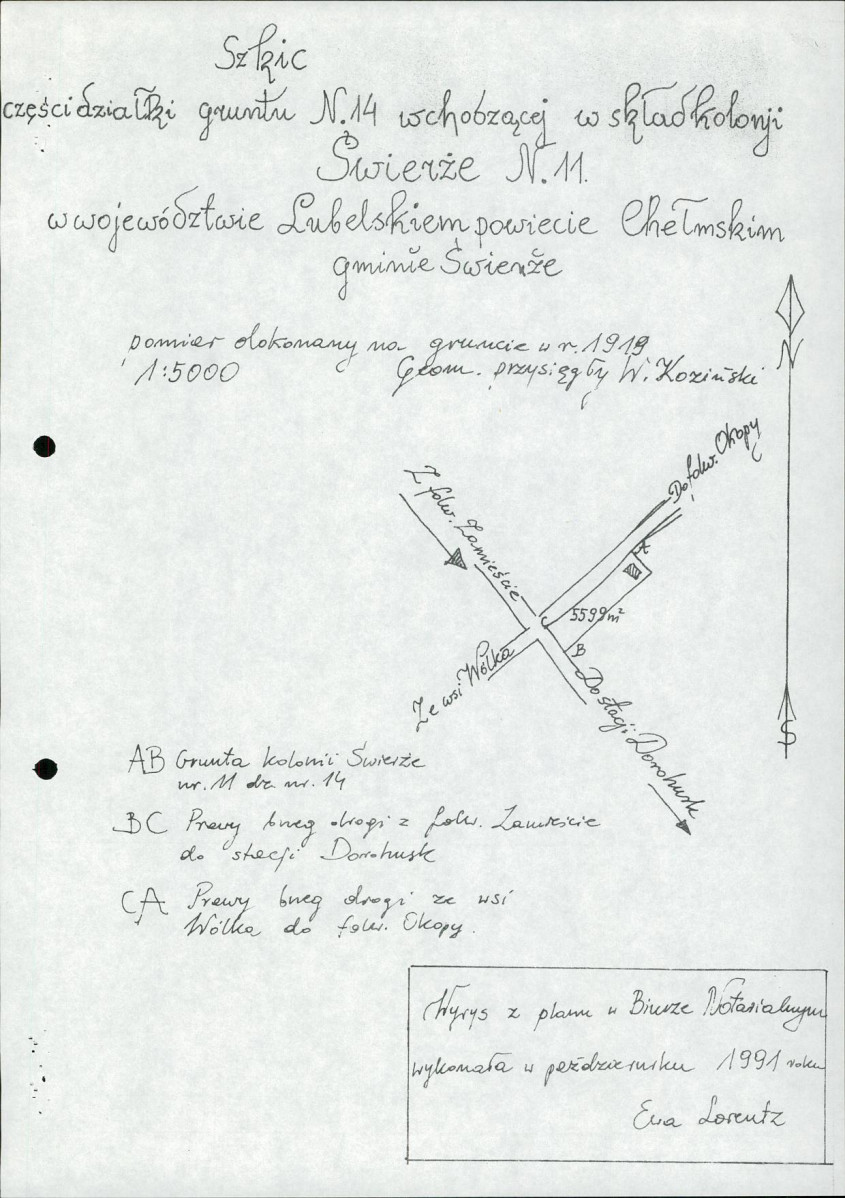 Szkic
części działki gruntu N.14 wchobzącej w skład kolonji
Świerże N.11.
w województwie Lubelskiem powiecie Chełmskim
gminie Świerże
pomiar dokonany na gruncie w r. 1919
1:5000 Geom. przysięgły W. Koziński
N
Do folw. Okopy
Z folw. Zamieście
A
5599 m²
C
B
Ze wsi Wólka
Do stacji Dorohusk
S
AB Grunta kolonii Świerże
nr. 11 dz. nr. 14
BC Prawy brzeg drogi z folw. Zamieście
do stacji Dorohusk
CA Prawy brzeg drogi ze wsi
Wólka do folw. Okopy.
Wyrys z planu w Biurze Notarialnym
wykonała w październiku 1991 roku
Ewa Lorentz